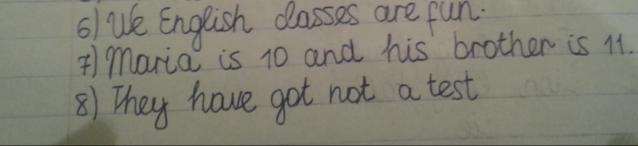 6) We English classes are fun.
7) Maria is 10 and his brother is 11.
8) They have got not a test